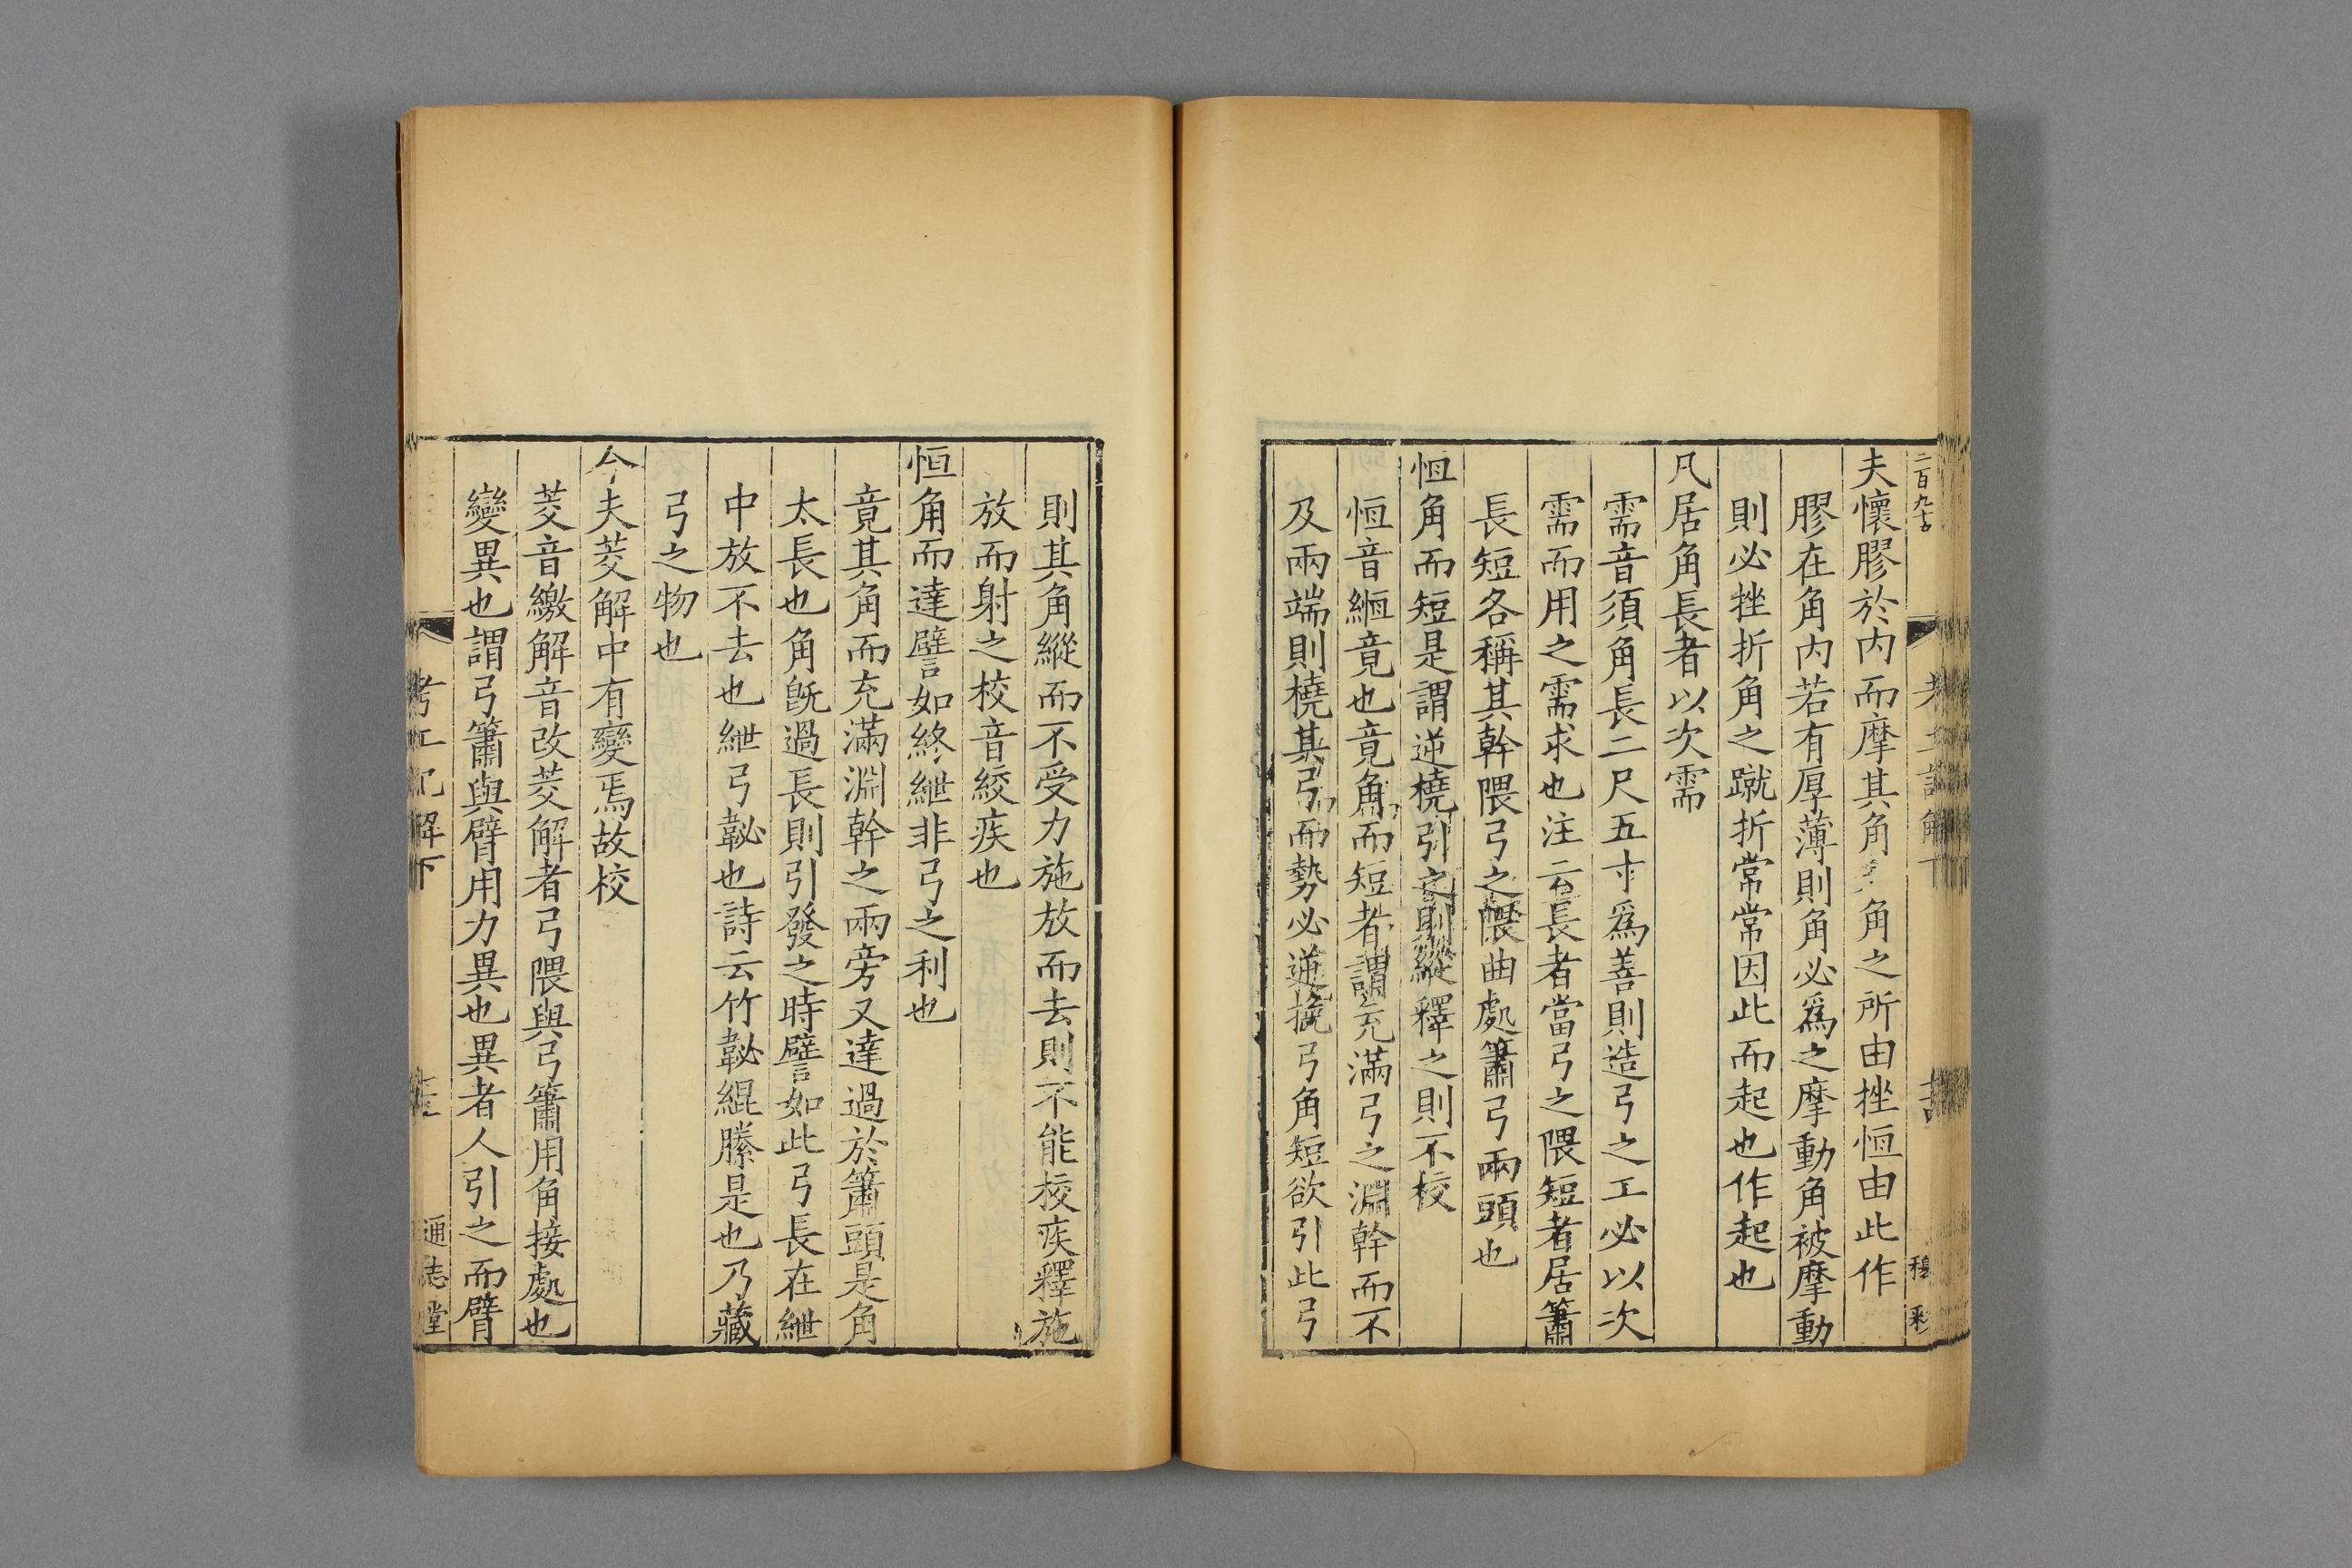 夫懷膠於内而摩其角角之所由挫恒由此作
膠在角内若有厚薄則角必爲之摩動角被摩動
則必挫折角之蹴折常常因此而起也作起也
凡居角長者以次需
需音須角長二尺五寸爲善則造弓之工必以次
需而用之需求也注云長者當弓之隈短者居簫
長短各稱其幹隈弓之隈曲處簫弓兩頭也
恒角而短是謂逆橈引之則縱釋之則不校
恒音緪竟也竟角而短者謂充滿弓之淵幹而不
及兩端則橈其弓而勢必逆撓弓角短欲引此弓
則其角縱而不受力施放而去則不能校疾釋施
放而射之校音絞疾也
恒角而達譬如終紲非弓之利也
竟其角而充滿淵幹之兩旁又達過於簫頭是角
太長也角旣過長則引發之時譬如此弓長在紲
中放不去也紲弓䪐也詩云竹䪐緄縢是也乃藏
弓之物也
今夫茭解中有變焉故校
茭音繳解音改茭解者弓隈與弓簫用角接處也
變異也謂弓簫與臂用力異也異者人引之而臂
考工記解下
通志堂